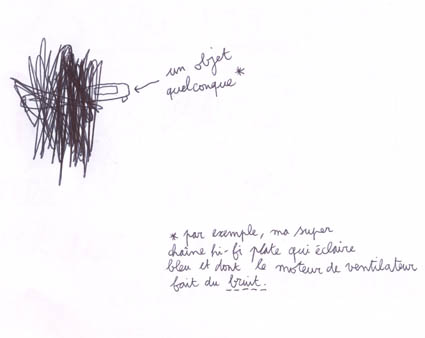 un objet
quelconque*
* par exemple, ma super
chaîne hi-fi plate qui éclaire
bleu et dont le moteur de ventilateur
fait du bruit.